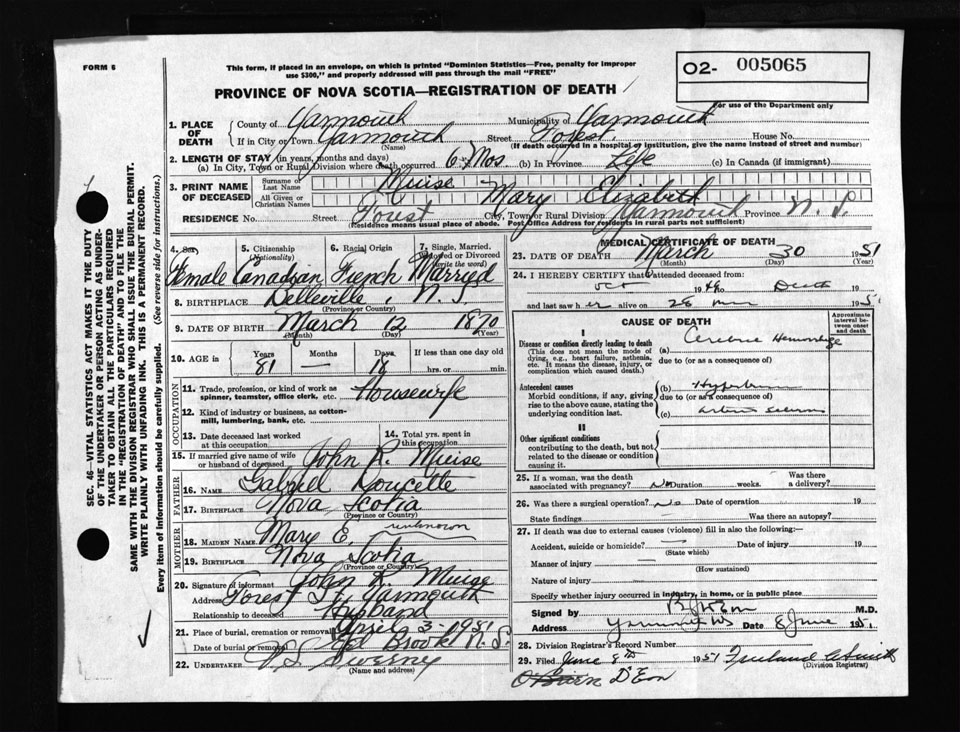 FORM 6
This form, if placed in an envelope, on which is printed "Dominion Statistics—Free, penalty for improper
use $300," and properly addressed will pass through the mail "FREE"
PROVINCE OF NOVA SCOTIA—REGISTRATION OF DEATH
02- 005065
For use of the Department only
1. PLACE OF DEATH
County of Yarmouth Municipality of Yarmouth
If in City or Town Yarmouth Street Forest House No.
(Name) (If death occurred in a hospital or institution, give name instead of street and number)
2. LENGTH OF STAY (in years, months and days)
(a) In City, Town or Rural Division where death occurred 6 Mos. (b) In Province Life (c) In Canada (if immigrant)
3. PRINT NAME OF DECEASED
Surname or Last Name Muise
All Given or Christian Names Mary Elizabeth
RESIDENCE No. Street Forest City, Town or Rural Division Yarmouth Province N. S.
(Residence means usual place of abode. Post Office Address for residents in rural parts not sufficient)
4. Sex Female
5. Citizenship (Nationality) Canadian
6. Racial Origin French
7. Single, Married, Widowed or Divorced (write the word) Married
8. BIRTHPLACE Belleville, N. S.
(Province or Country)
9. DATE OF BIRTH March 12 1870
(Month) (Day) (Year)
10. AGE in Years Months Days If less than one day old
81 — 18 hrs. or min.
OCCUPATION
11. Trade, profession, or kind of work as
spinner, teamster, office clerk, etc. Housewife
12. Kind of industry or business, as cotton-
mill, lumbering, bank, etc.
13. Date deceased last worked
at this occupation
14. Total yrs. spent in
this occupation
15. If married give name of wife
or husband of deceased John R. Muise
FATHER
16. NAME Gabriel Doucette
17. BIRTHPLACE Nova Scotia
(Province or Country)
MOTHER
18. MAIDEN NAME Mary E. unknown
19. BIRTHPLACE Nova Scotia
(Province or Country)
20. Signature of informant John R. Muise
Address Forest St. Yarmouth
Relationship to deceased Husband
21. Place of burial, cremation or removal
April 3-1951
Date of burial or removal Brook N. S.
22. UNDERTAKER V. S. Sweeny
(Name and address)
MEDICAL CERTIFICATE OF DEATH
23. DATE OF DEATH March 30 1951
(Month) (Day) (Year)
24. I HEREBY CERTIFY that I attended deceased from:
Oct 1946 to Death
and last saw her alive on 28 mar 195
CAUSE OF DEATH
Approximate interval between onset and death
I
Disease or condition directly leading to death
(This does not mean the mode of
dying, e.g., heart failure, asthenia,
etc. It means the disease, injury, or
complication which caused death.)
(a) Cerebral Hemorrhage
due to (or as a consequence of)
Antecedent causes
Morbid conditions, if any, giving
rise to the above cause, stating the
underlying condition last.
(b)
due to (or as a consequence of)
(c)
II
Other significant conditions
contributing to the death, but not
related to the disease or condition
causing it.
25. If a woman, was the death
associated with pregnancy? No Duration weeks. Was there a delivery?
26. Was there a surgical operation? No Date of operation 19
State findings Was there an autopsy?
27. If death was due to external causes (violence) fill in also the following:—
Accident, suicide or homicide? — Date of injury 19
(State which)
Manner of injury —
(How sustained)
Nature of injury —
Specify whether injury occurred in industry, in home, or in public place
Signed by M.D.
Address Yarmouth NS Date 8 June 1951.
28. Division Registrar's Record Number
29. Filed June 8th 1951
(Division Registrar)
D'Eon
SEC. 46—VITAL STATISTICS ACT MAKES IT THE DUTY
OF THE UNDERTAKER OR PERSON ACTING AS UNDER-
TAKER TO OBTAIN ALL THE PARTICULARS REQUIRED
IN THE "REGISTRATION OF DEATH" AND TO FILE THE
SAME WITH THE DIVISION REGISTRAR WHO SHALL ISSUE THE BURIAL PERMIT.
WRITE PLAINLY WITH UNFADING INK. THIS IS A PERMANENT RECORD.
Every item of information should be carefully supplied. (See reverse side for instructions.)